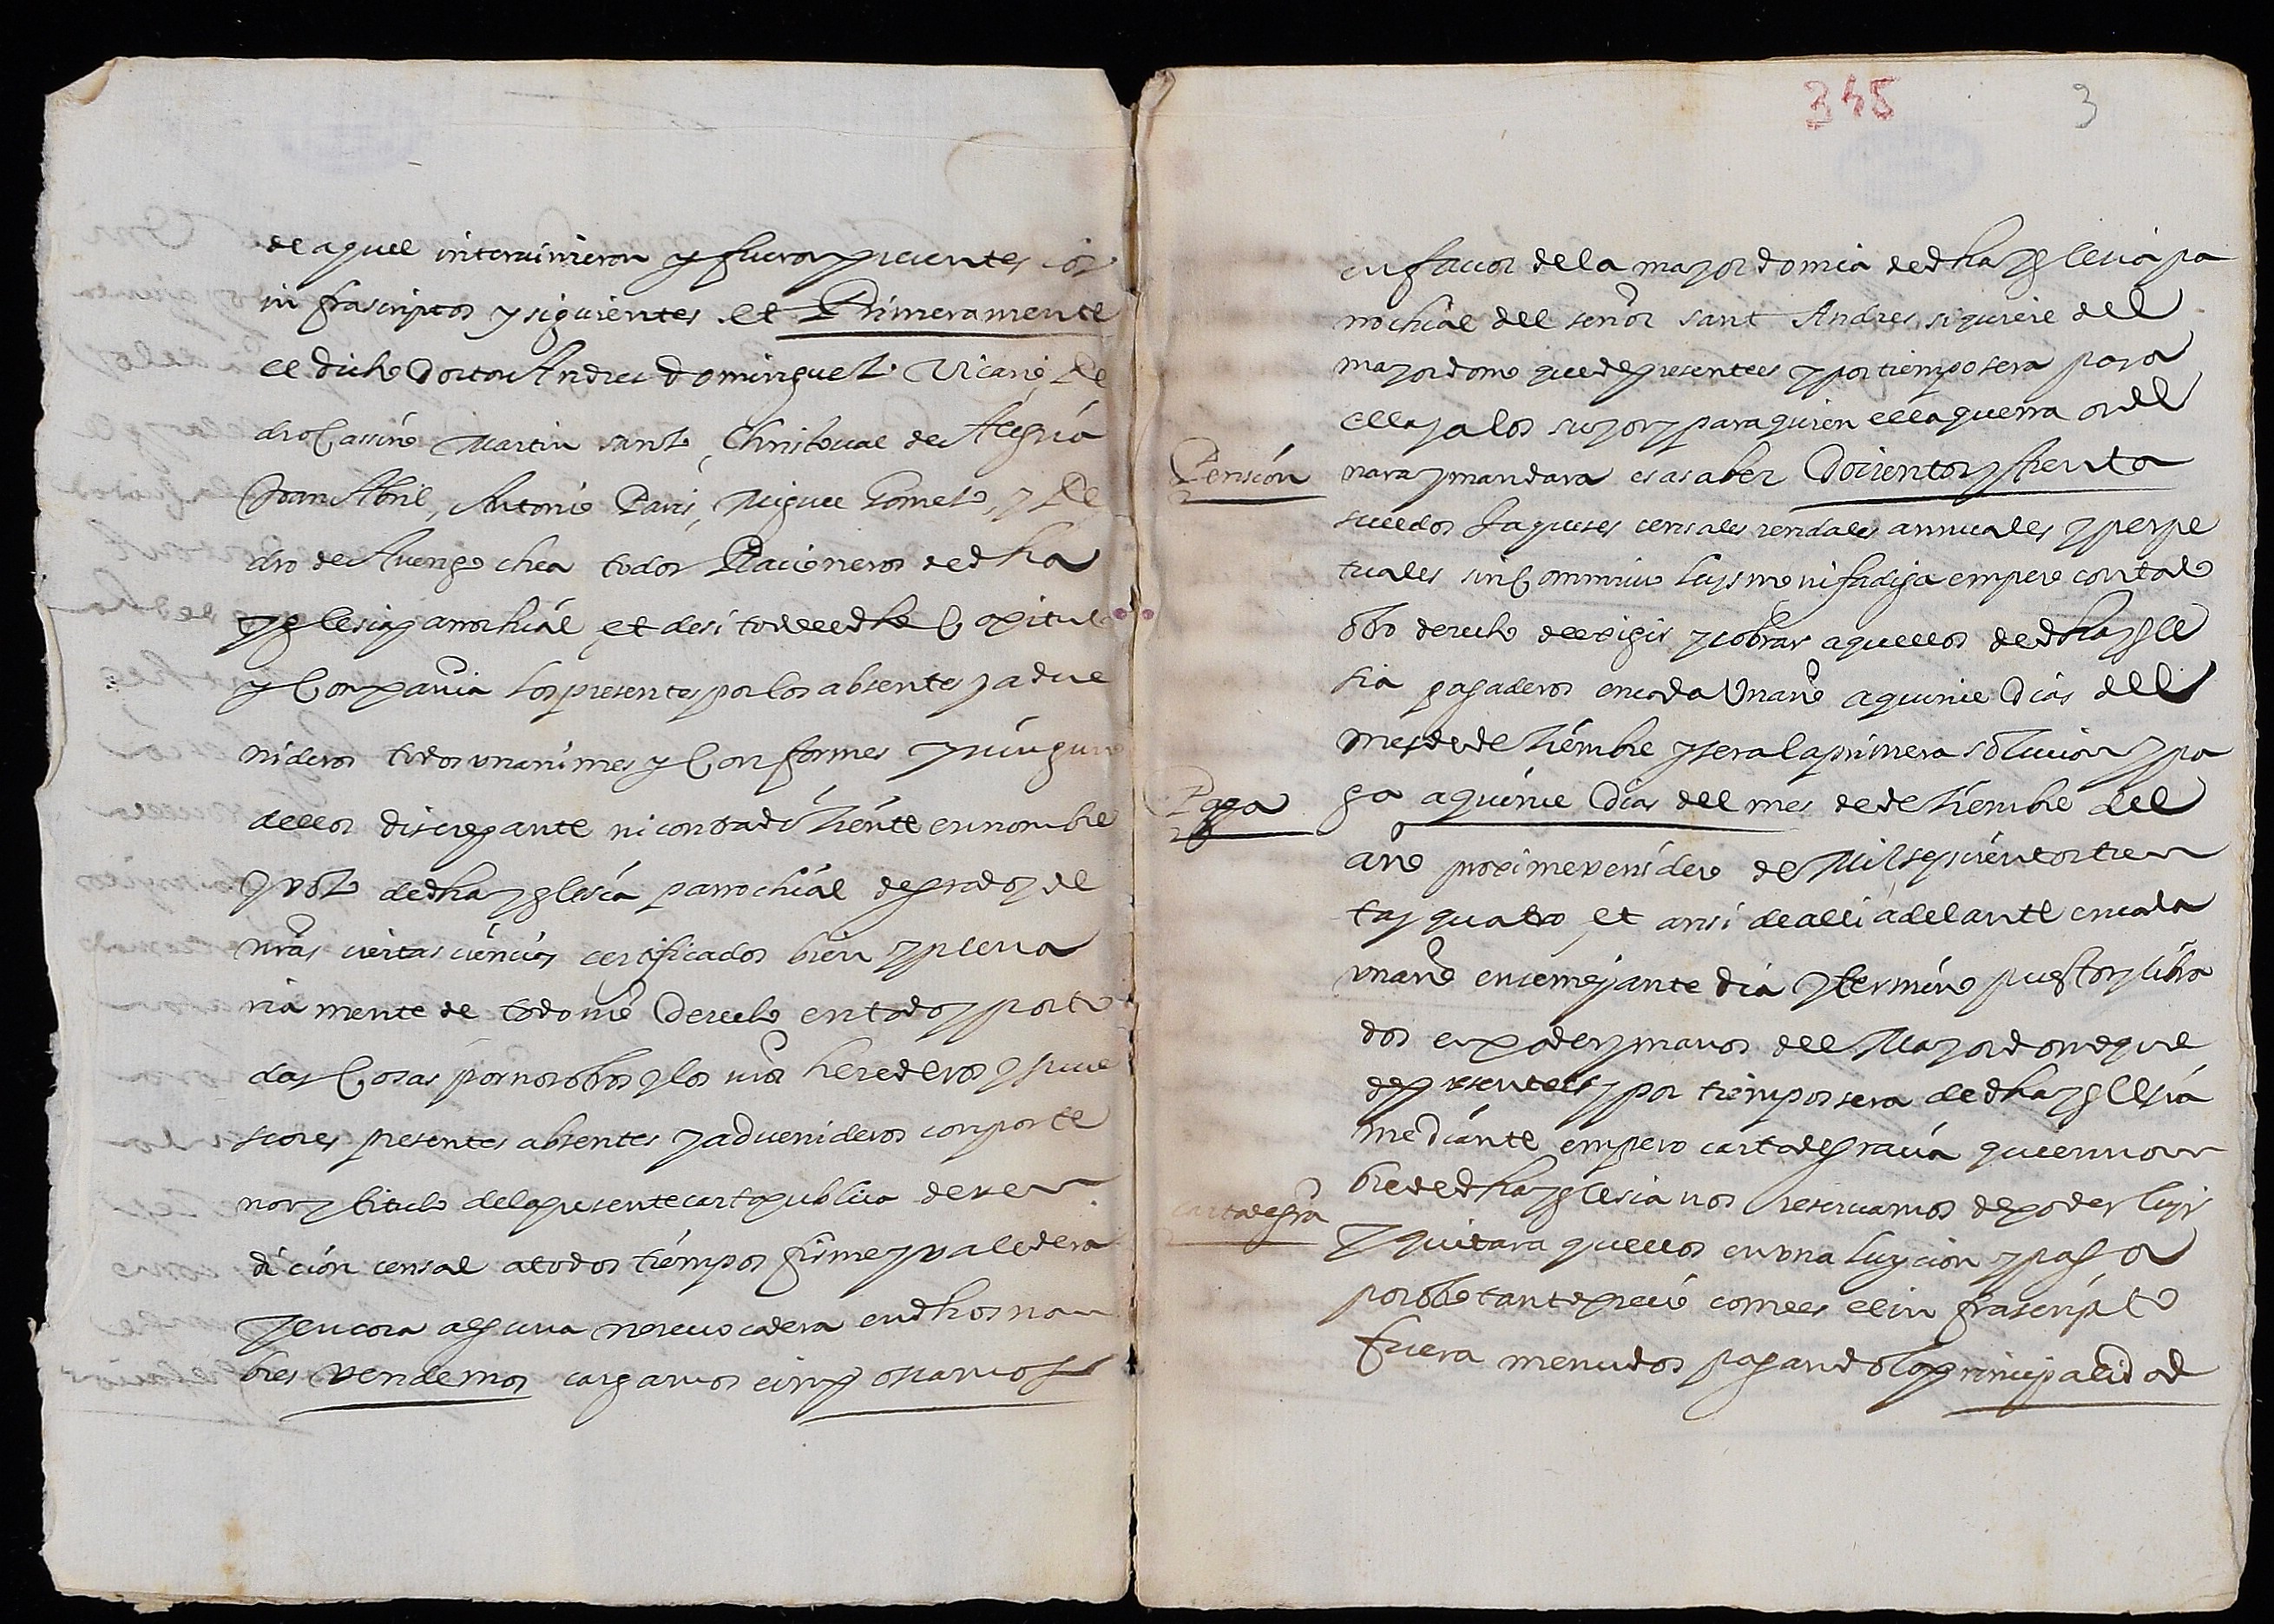 de aquel interuinieron y fueron presentes los
infrascriptos y siguientes et Primeramente
el dicho Dottor Andres Dominguez Vicario, Pe
dro Cassino Martin sanz, Christoual de Alegria
Joan Abril, Antonio Paris, Miguel Gomez, y Pe
dro de Auengochea todos Racioneros de dha
yglesia parrochial et desi todo el dho Capitulo
y Compañia los presentes por los absentes y adue
nideros todos unanimes y Conformes y ninguno
dellos discrepante ni contradiziente en nombre
y voz de dha yglesia parrochial de grado y de
nrãs ciertas ciencias certificados bien y plena
riamente de todo nrõ Derecho en todo y por to
das Cosas por nosotros y los nrõs herederos y suce
ssores presentes absentes y aduenideros con y por te
nor y titulo de la presente carta publica de ven
dicion censal a todos tiempos firme y valedera
y en cosa alguna no reuocadera en dhos nom
bres vendemos cargamos e imposamos
345 3
en fauor de la mayordomia de dha yglesia pa
rrochial del señor sant Andres, siquiere del
mayordomo que de presente es y por tiempo sera para
ella y a los suyos y para quien ella querra orde
Pension nara y mandara es a saber Docientos y treinta
sueldos Jaqueses censales rendales annuales y perpe
tuales sin Commisso luysmo ni fadiga empero con todo
otro derecho de exigir y cobrar aquellos de dha ygle
sia pagaderos en cada un año a quinze Dias del
mes de deziembre y sera la primera solucion y pa
Paga ga a quinze Dias del mes de deziembre del
año proximo venidero de Mil seyscientos tren
ta y quatro et ansi de alli adelante en cada
un año en semejante dia y termino puestos y libra
dos en poder y manos del Mayordomo que
de presente es y por tiempo sera de dha yglesia
mediante empero carta de gracia que en nom
carta de grã bre de dha yglesia nos reseruamos de poder luyr
y quitar aquellos en una luycion y paga
por otro tanto precio como es el infrascripto
fuera menudos pagando la principalidad